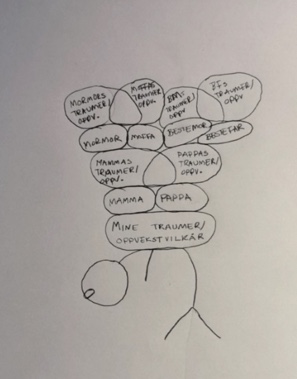 MORMORS
TRAUMER/
OPPV.
MORFARS
TRAUMER/
OPPV.
BMs
TRAUMER/
OPPV
BFs
TRAUMER/
OPPV
MORMOR
MORFAR
BESTEMOR
BESTEFAR
MAMMAS
TRAUMER/
OPPV.
PAPPAS
TRAUMER/
OPPV.
MAMMA
PAPPA
MINE TRAUMER/
OPPVEKSTVILKÅR